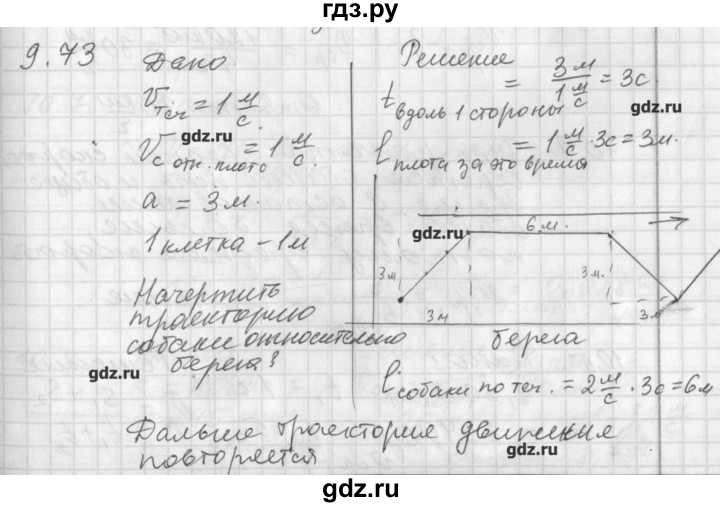 гдз.ру
9.73
Дано
Vтеч = 1 м/с.
Vс отн. плота = 1 м/с.
a = 3 м.
1 клетка - 1 м
Начертить
траекторию
собаки относительно
берега?
Решение
t вдоль 1 стороны = 3 м / 1 м/с = 3 с.
l плота за это время = 1 м/с · 3 с = 3 м.
6 м.
3 м
3 м.
3 м
3 м
берега
l собаки по теч. = 2 м/с · 3 с = 6 м
Дальше траектория движения
повторяется
gdz.ru
gdz.ru
gdz.ru
gdz.ru
gdz.ru
gdz.ru